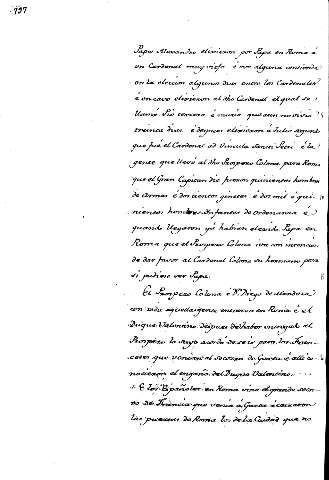 197
Papa Alexandro elixieron por Papa en Roma á
un Cardenal muy viejo é con alguna contienda
en la eleccion algunos dias entre los Cardenales
é en cavo elixieron al dho Cardenal el qual se
llamó Pio tercero é murió que aun no vivio
treinta dias é despues elixieron á Julio segundo
que fué el Cardenal ad Vincula Sancti Petri é la
gente que llevó al dho Prospero Colona para Roma
que el Gran Capitan dió fueron quinientos hombres
de armas é doscientos ginetes é dos mil é qui-
nientos hombres Infantes de ordenanza é
quando llegaron yá habian elexido Papa en
Roma que el Prospero Coluna iva con intencion
de dar favor al Cardenal Colona su hermano para
si pudiese ser Papa.
El Prospero Coluna é Dn Diego de Mendoza
con toda aquella gente entraron en Roma é el
Duque Valentino despues de haber entregado al
Prospero lo suyo acordó de se ir para los Fran-
ceses que venian al socorro de Gaeta é alli co-
nocieron el engaño del Duque Valentino.
É los Españoles en Roma vino el grande socor-
ro de Francia que venia á Gaeta é cerraron
las puertas de Roma los de la Ciudad que no